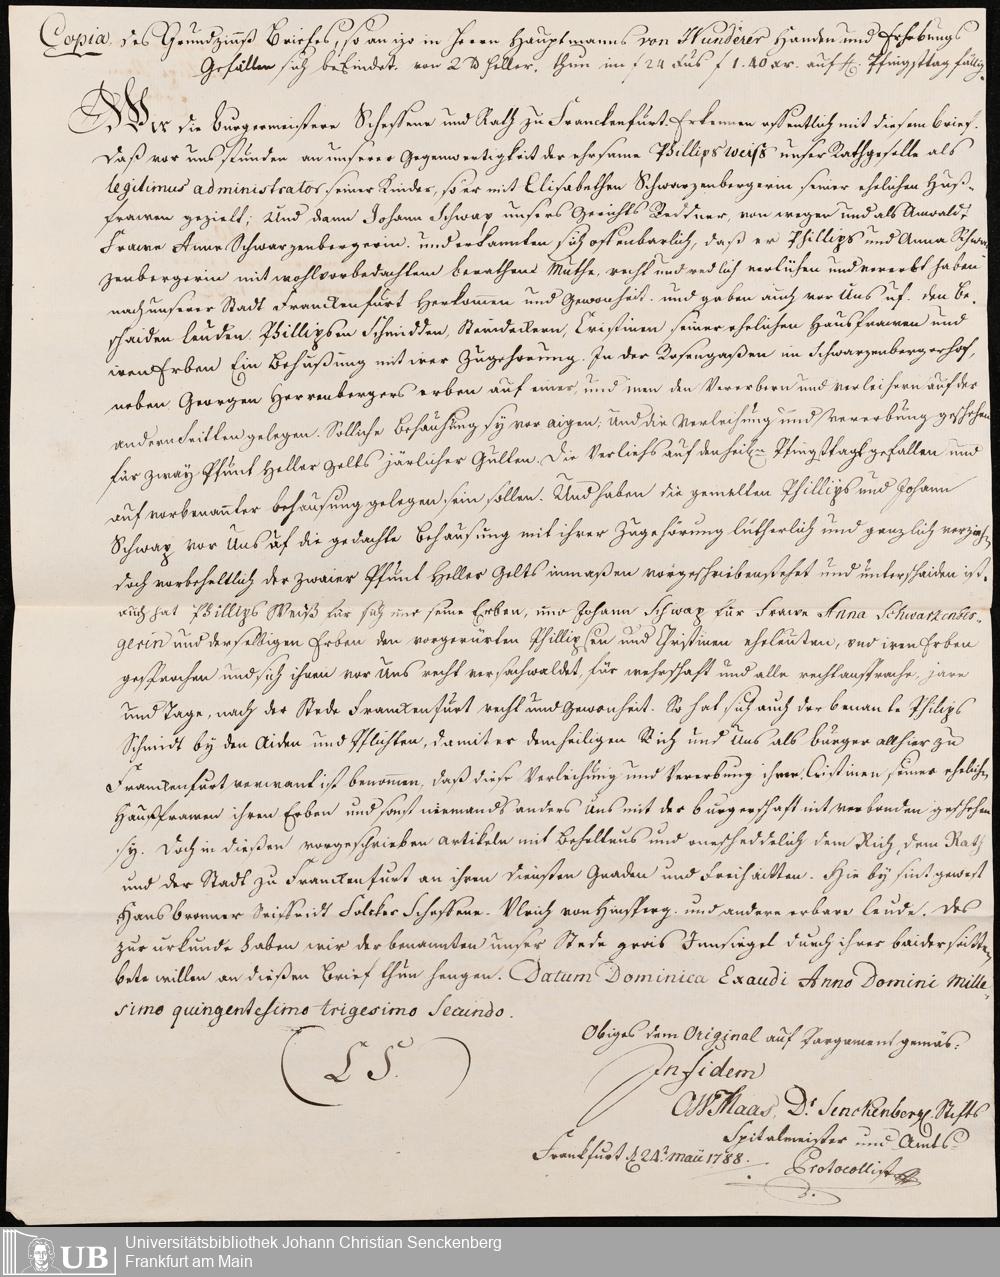 Copia des Grundzinnß Briefes, so an izo in Herrn Hauptmanns von Wunderer Handen und Erhebungs
Gefällen sich befindet. von 2 ℔ Heller, thun im f 24 Fus f 1. 40 xr. auf Pfingsttag fällig.
Wir die Burgermeistere Scheffene und Rath zu Franckenfurt. Erkennen offentlich mit diesem Brief.
Daß vor uns stunden an unserer Gegenwertigkeit der ehrsame Phillips Weiß unser Rathgeselle als
legitimus administrator seiner Kinder, so er mit Elisabethen Schwarzenbergerin seiner ehelichen Huß-
frawen gezielt; Und dann Johann Schwap unsers Gerichts Reddner, von wegen und als Anwaldt
Frawe Anne Schwarzenbergerin. und erkannten sich offenbarlich, daß er Phillips und Anna Schwar
zenbergerin mit wohlvorbedachtem berathene Muthe, recht und redlich verlühen und vererbt haben
nach unserer Stadt Franckenfurt Herkommen und Gewonheit. und gaben auch vor Uns uf. den Be-
schaiden leuden Phillipsen Schmidden, Steindeckern, Cristinen seiner ehelichen Haussfrawen und
iren Erben Ein Behußung mit irer Zugehorung. In der Rosengaßen im Schwarzenbergerhof,
neben Georgen Herrenbergers erben auf einer, und men den Vererbern und verleihern auf der
andern seitten gelegen. Solliche Behaußung sy vor aigen; Und die Verleihung und vererbung geschehen
für zway Pfunt Heller gelts järlicher Gulten. Die Verliehs auf den heil. Pfingstagk gefallen und
auf vorbenannter behausung gelegen sein sollen. Und haben die gemelten Phillips und Johann
Schwap vor Uns uf die gedachte Behausung mit ihrer Zugehörung lutherlich und genzlich verziehen
doch vorbeheltlich der zwaier Pfunt Heller Gelts inmaßen vorgeschrieben stehet und unterschaiden ist.
auch hat Phillips Weiß für sich und seine Erben, und Johann Schwap für Frawe Anna Schwartzenber-
gerin und derselbigen Erben den vorgerürten Phillipsen und Christinen eheleuten, und iren Erben
gesprochen und sich ihnen vor Uns recht versachwaldet, für wehrschaft und alle rechtansprache, jare
und Tage, nach der Stede Franckenfurt recht und Gewonheit. So hat sich auch der benante Philips
Schmidt by den Aiden und Pflichten, damit er dem heiligen Rich und Uns als burger allhier zu
Franckenfurt verwant ist benommen, daß diese Verleihung und Vererbung ihme, Cristinen seiner ehelichen
Haussfrawen ihren Erben und sonst niemands anders Uns mit der burgerschaft nit verbonden geschehen
sy. Doch in dießen vorgeschrieben artikeln mit Beheltnus und onescheddelich dem Rich, dem Rath
und der Stadt zu Franckenfurt an ihren Diensten Gnaden und Freihaitten. Hie by sint gewest
Hans bronner Seiffridt Folcker Scheffene. Ulrich von Hinsperg. und andere erbare leude. Des
zur urkunde haben wir der benannten unser Stede grois Innsiegel durch ihrer baidersaitten
bete willen an dießen Brief thun hengen. Datum Dominica Exaudi Anno Domini Mille-
simo quingentesimo trigesimo Secundo.
L S.
Obiges dem Original auf Pargament gemäs:
In fidem
Maas, Dr. Senckenberg. Stifts
Spitalmeister und Amts
Frankfurt d. 24t. maii 1788.
Protocollist
UB Universitätsbibliothek Johann Christian Senckenberg
Frankfurt am Main